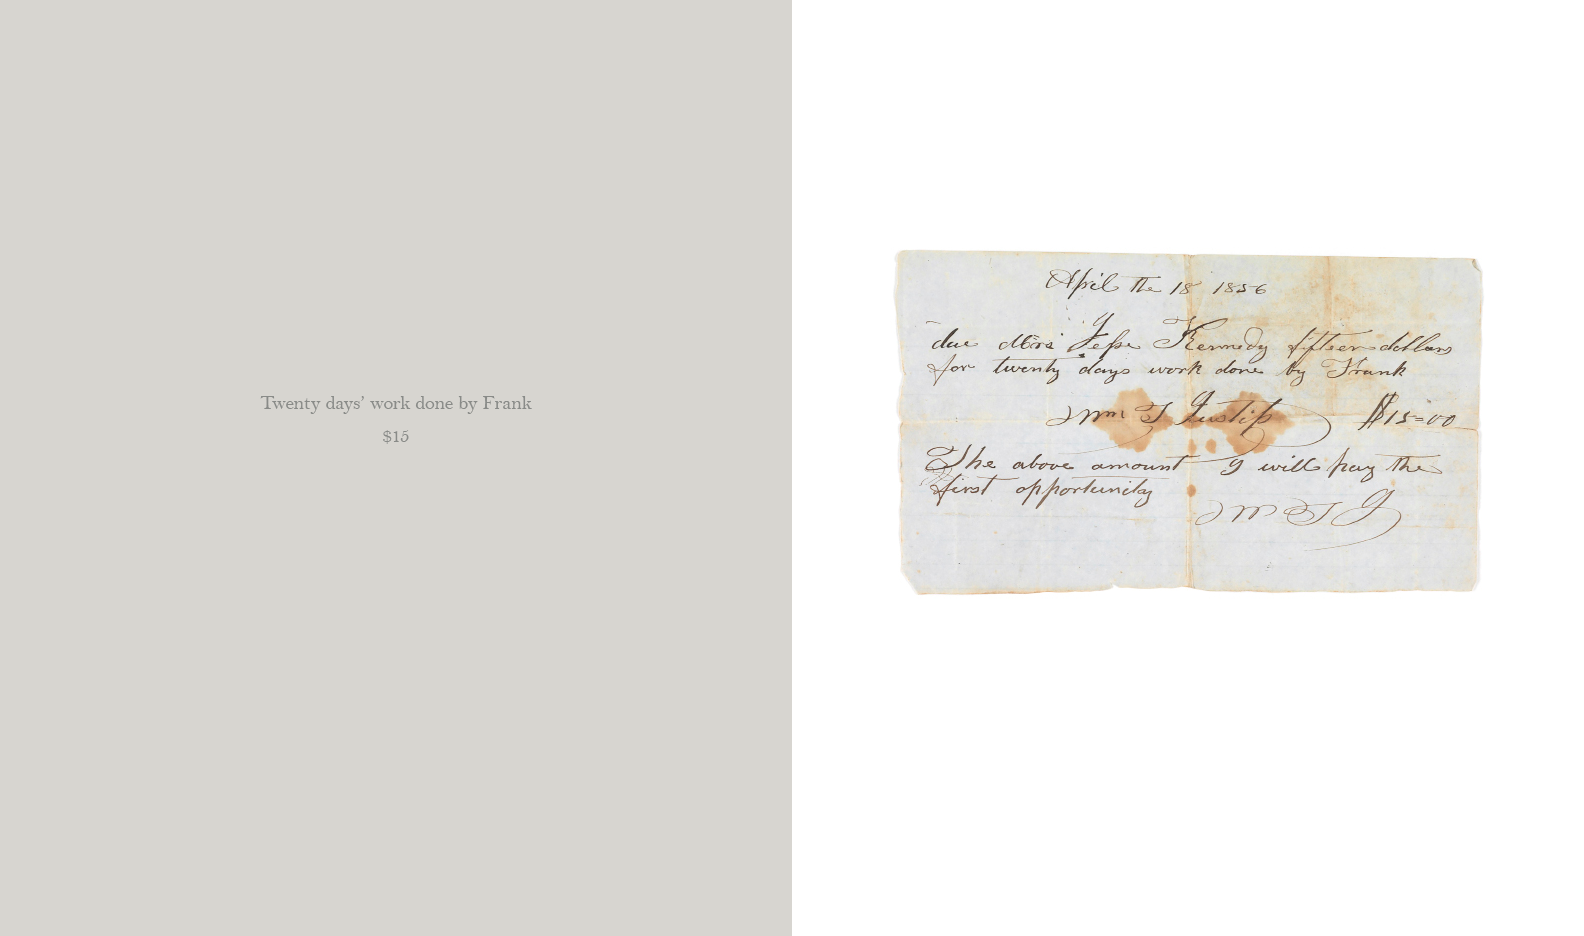 Twenty days' work done by Frank
$15
April the 18 1856
due Mrs Jesse Kennedy fifteen dollars
for twenty days work done by Frank
Wm T Justiss $15=00
The above amount I will pay the
first opportunity
W T J